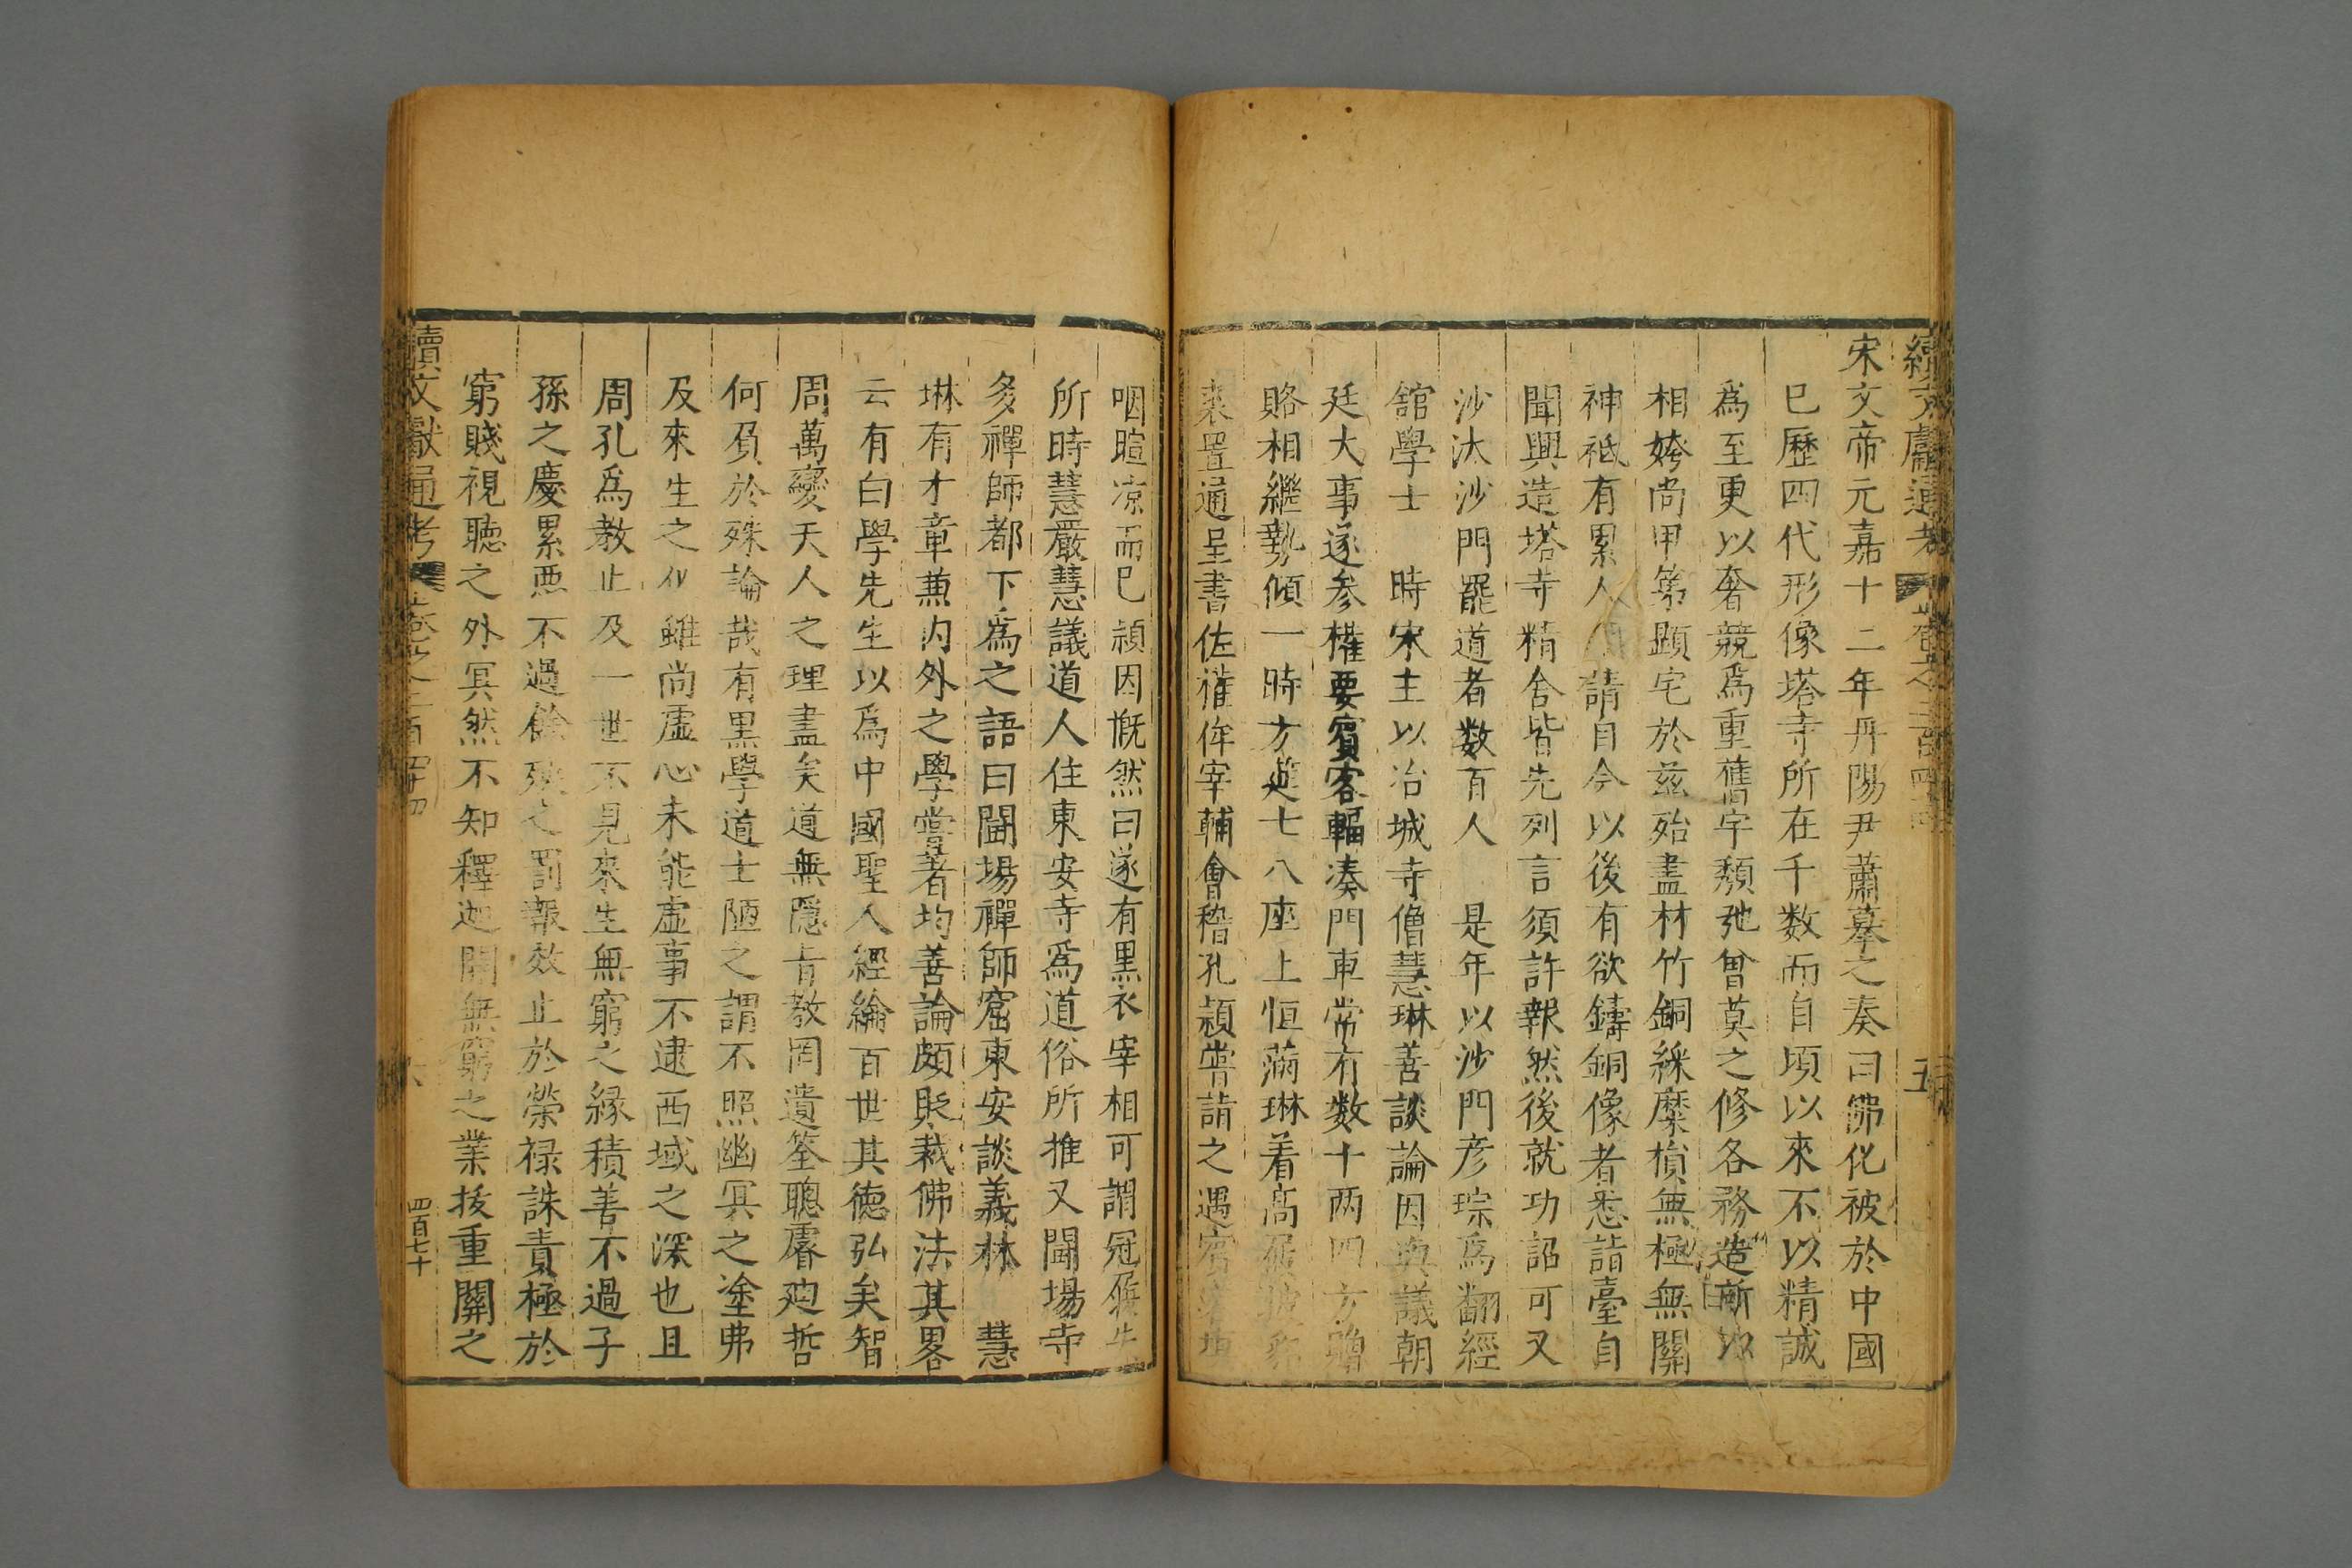 續文獻通考 卷之二百四十四 五
宋文帝元嘉十二年丹陽尹蕭摹之奏曰佛化被於中國
已歷四代形像塔寺所在千数而自頃以來不以精誠
爲至更以奢競爲重舊宇頽弛曾莫之修各務造新以
相姱尚甲第顯宅於兹殆盡材竹銅綵糜損無極無關
神祗有累人 請自今以後有欲鑄銅像者悉詣臺自
聞興造塔寺精舍皆先列言須許報然後就功詔可又
沙汰沙門罷道者数百人 是年以沙門彦琮爲翻經
舘學士 時宋主以冶城寺僧慧琳善談論因與議朝
廷大事遂参權要賓客輻湊門車常有数十两四方贈
賂相繼勢傾一時方筵七八座上恒滿琳着高屐披貂
裘置通呈書佐權侔宰輔會稽孔顗嘗詣之遇賓客填
咽暄凉而已顗因慨然曰遂有黒衣宰相可謂冠屨失
所時慧嚴慧議道人住東安寺爲道俗所推又闘場寺
多禪師都下爲之語曰闘場禪師窟東安談義林 慧
琳有才章兼内外之學嘗著均善論頗貶裁佛法其畧
云有白學先生以爲中國聖人經綸百世其德弘矣智
周萬變天人之理盡矣道無隱旨教罔遺筌聰睿廸哲
何負於殊論哉有黒學道士陋之謂不照幽冥之塗弗
及來生之化雖尚虚心未能虚事不逮西域之深也且
周孔爲教止及一世不見來生無窮之緣積善不過子
孫之慶累悪不過餘殃之罰報效止於榮禄誅責極於
窮賤視聽之外冥然不知釋迦關無窮之業拔重關之
續文獻通考 卷之二百四十四 六 四百七十